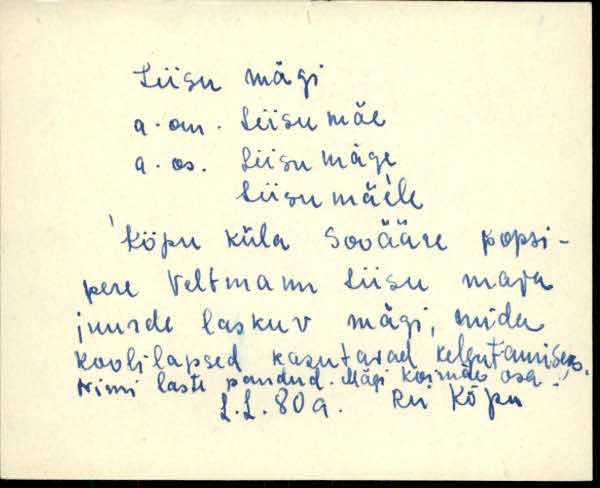 Liisu mägi
a. om. Liisu mäe
a. os. Liisu mäge
Liisu mäele
Kõpu küla Sovääre popsi-
pere Veltmann Liisu maja
juurde laskuv mägi, mida
koolilapsed kasutavad kelgutamiseks.
Nimi laste pandud. Mägi osa.
L.L. 80 a. Rii Kõpu